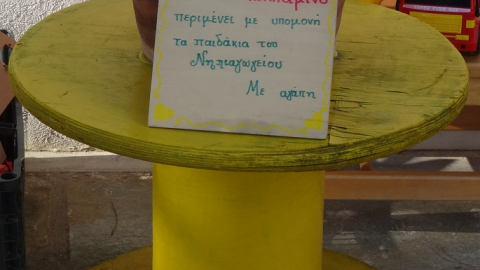 περιμένει με υπομονή
τα παιδάκια του
Νηπιαγωγείου
Με αγάπη